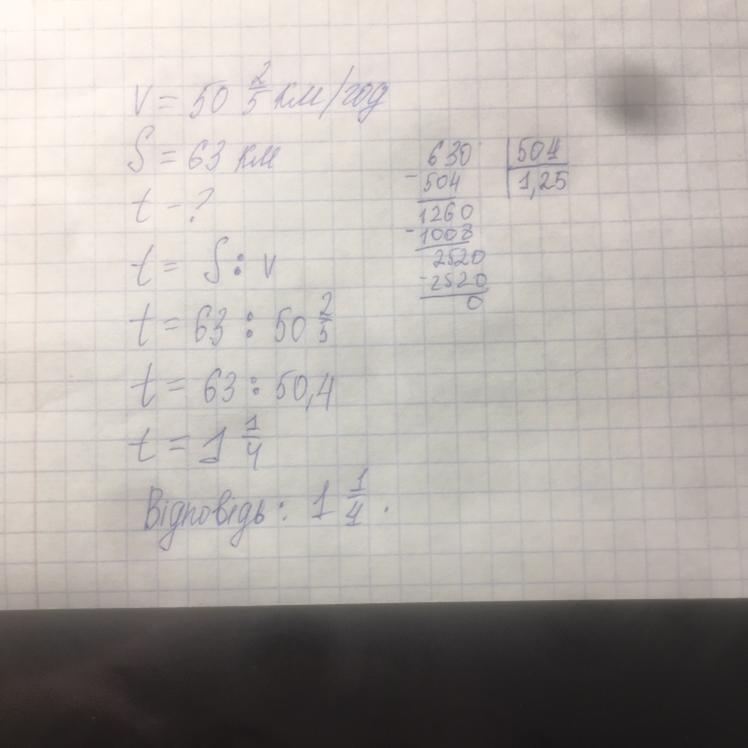 v = 50 2/5 км/год
S = 63 км
t - ?
t = S : v
t = 63 : 50 2/5
t = 63 : 50,4
t = 1 1/4
Відповідь: 1 1/4.
630 | 504
-504 | 1,25
1260
-1008
2520
-2520
0